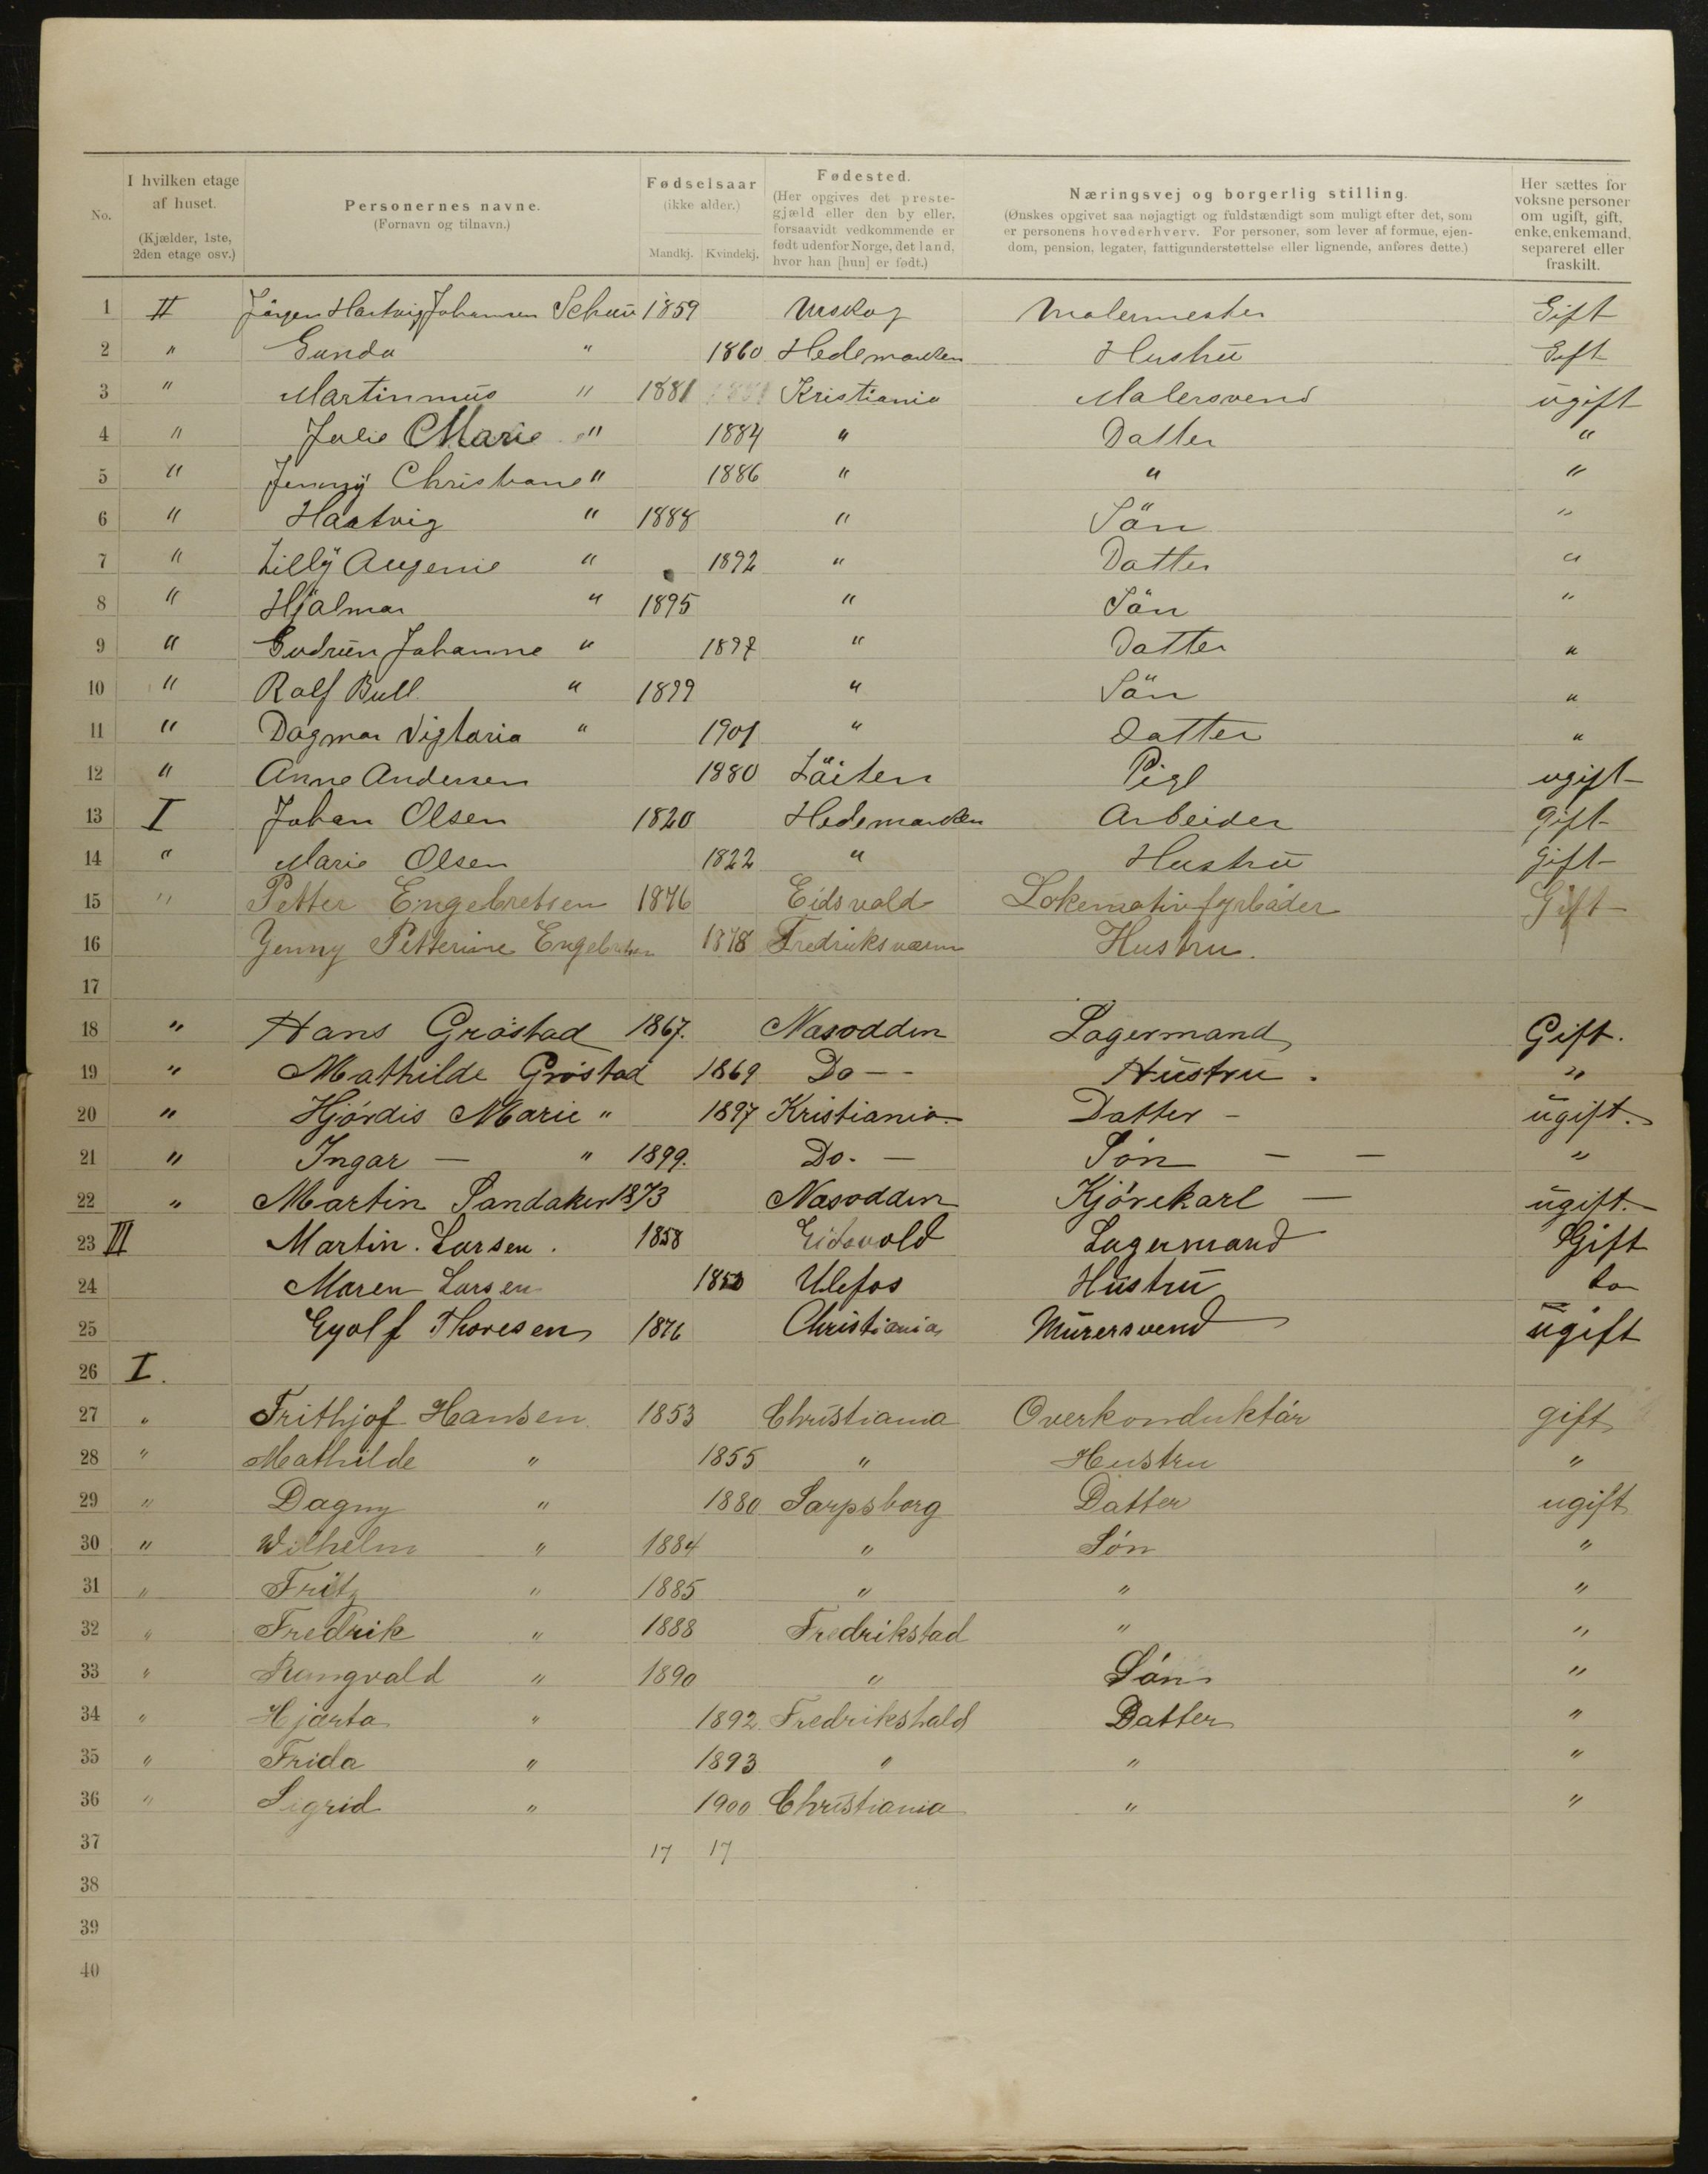 No.
I hvilken etage af huset. (Kjælder, 1ste, 2den etage osv.)
Personernes navne. (Fornavn og tilnavn.)
Fødselsaar (ikke alder.) Mandkj. Kvindekj.
Fødested. (Her opgives det prestegjæld eller den by eller, forsaavidt vedkommende er født udenfor Norge, det land, hvor han [hun] er født.)
Næringsvej og borgerlig stilling. (Ønskes opgivet saa nøjagtigt og fuldstændigt som muligt efter det, som er personens hovederhverv. For personer, som lever af formue, ejendom, pension, legater, fattigunderstøttelse eller lignende, anføres dette.)
Her sættes for voksne personer om ugift, gift, enke, enkemand, separeret eller fraskilt.
1 II Jörgen Hartvig Johansen Schau 1859 Urskog Malermester Gift
2 " Gunda " 1860 Hedemarken Hustru Gift
3 " Martinmus " 1881 Kristiania Malersvend ugift
4 " Julie Marie " 1884 " Datter "
5 " Jenny Christiane " 1886 " " "
6 " Hartvig " 1888 " Sön "
7 " Lilly Augenie " 1892 " Datter "
8 " Hjalmar " 1895 " Sön "
9 " Gudrun Johanne " 1897 " Datter "
10 " Rolf Bull " 1899 " Sön "
11 " Dagmar Vigtoria " 1901 " Datter "
12 " Anne Andersen 1880 Löiten Pige ugift
13 I Johan Olsen 1820 Hedemarken Arbeider gift
14 " Marie Olsen 1822 " Hustru gift
15 " Petter Engebretsen 1876 Eidsvold Lokomotivfyrböder Gift
16 Jenny Petterine Engebretsen 1878 Fredriksværn Hustru.
17
18 " Hans Gröstad 1867. Nasodden Lagermand Gift.
19 " Mathilde Gröstad 1869 Do - - Hustru . "
20 " Hjördis Marie " 1897 Kristiania Datter - ugift.
21 " Ingar — " 1899. Do. — Sön — — "
22 " Martin Sandaker 1873 Nasodden Kjörekarl — ugift. -
23 III Martin. Larsen. 1858 Eidsvold Lagermand Gift
24 Maren Larsen 1850 Ulefos Hustru do
25 Eyolf Thoresen 1876 Christiania Murersvend ugift
26 I.
27 " Frithjof Hansen 1853 Christiania Overkonduktör gift
28 " Mathilde " 1855 " Hustru "
29 " Dagny " 1880 Sarpsborg Datter ugift
30 " Wilhelm " 1884 " Sön "
31 " Fritz " 1885 " " "
32 " Fredrik " 1888 Fredrikstad " "
33 " Rangvald " 1890 " Sön "
34 " Hjørta " 1892 Fredrikshald Datter "
35 " Frida " 1893 " " "
36 " Sigrid " 1900 Christiania " "
37 17 17
38
39
40